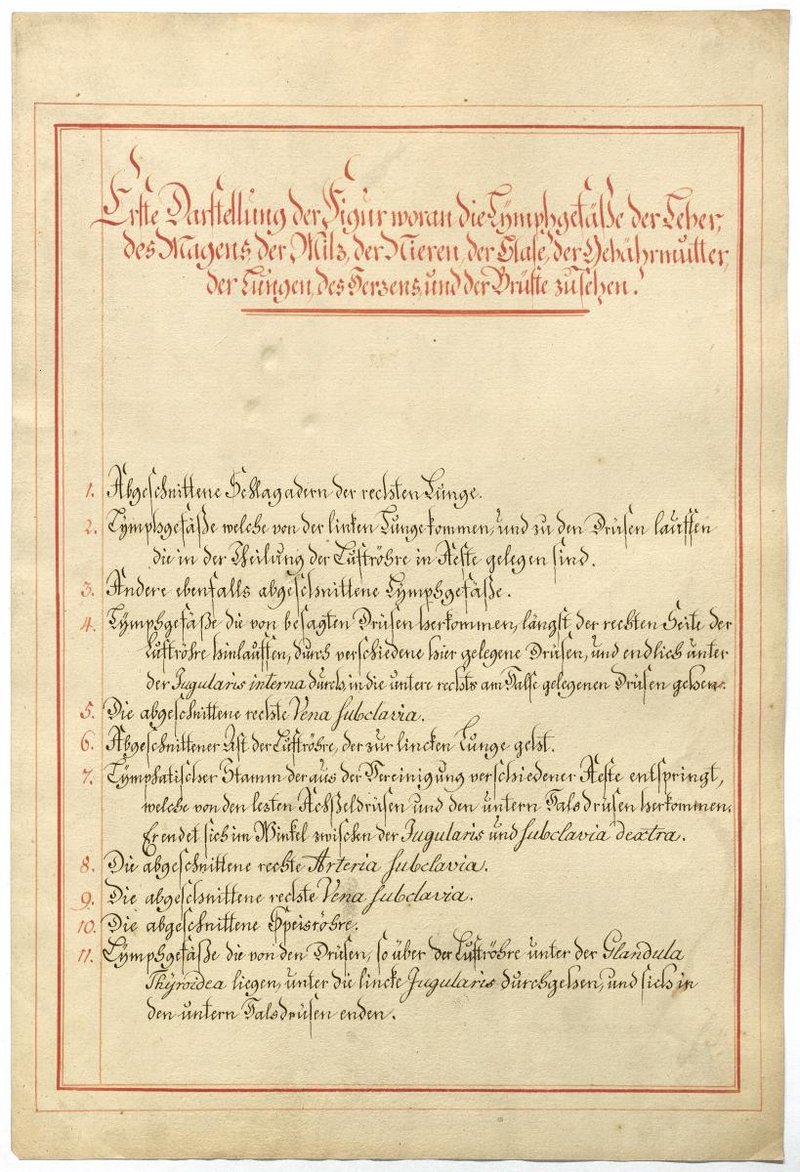 Erste Darstellung der Figur woran die Lÿmphgefäße der Leber,
des Magens, der Milz, der Nieren, der Blase, der Gebährmutter,
der Lungen, des Herzens, und der Brüste zu sehen.
1. Abgeschnittene Schlagadern der rechten Lunge.
2. Lÿmphgefäße welche von der linken Lunge kommen, und zu den Drüsen lauffen
die in der Theilung der Luftröhre in Aeste gelegen sind.
3. Andere ebenfalls abgeschnittene Lÿmphgefäße.
4. Lÿmphgefäße die von besagten Drüsen herkommen, längst der rechten Seite der
Luftröhre hinlauffen, durch verschiedene hier gelegene Drüsen, und endlich unter
der Jugularis interna durch, in die untere rechts am Halse gelegenen Drüsen gehen.
5. Die abgeschnittene rechte Vena subclavia.
6. Abgeschnittener Ast der Luftröhre, der zur lincken Lunge geht.
7. Lÿmphatischer Stamm der aus der Vereinigung verschiedener Aeste entspringt,
welche von den lezten Achßeldrüsen und den untern Halsdrüsen herkommen.
Er endet sich im Winkel zwischen der Jugularis und subclavia dextra.
8. Die abgeschnittene rechte Arteria subclavia.
9. Die abgeschnittene rechte Vena subclavia.
10. Die abgeschnittene Speisröhre.
11. Lÿmphgefäße die von den Drüsen, so über der Luftröhre unter der Glandula
Thÿroidea liegen, unter die lincke Jugularis durchgehen, und sich in
den untern Halsdrüsen enden.